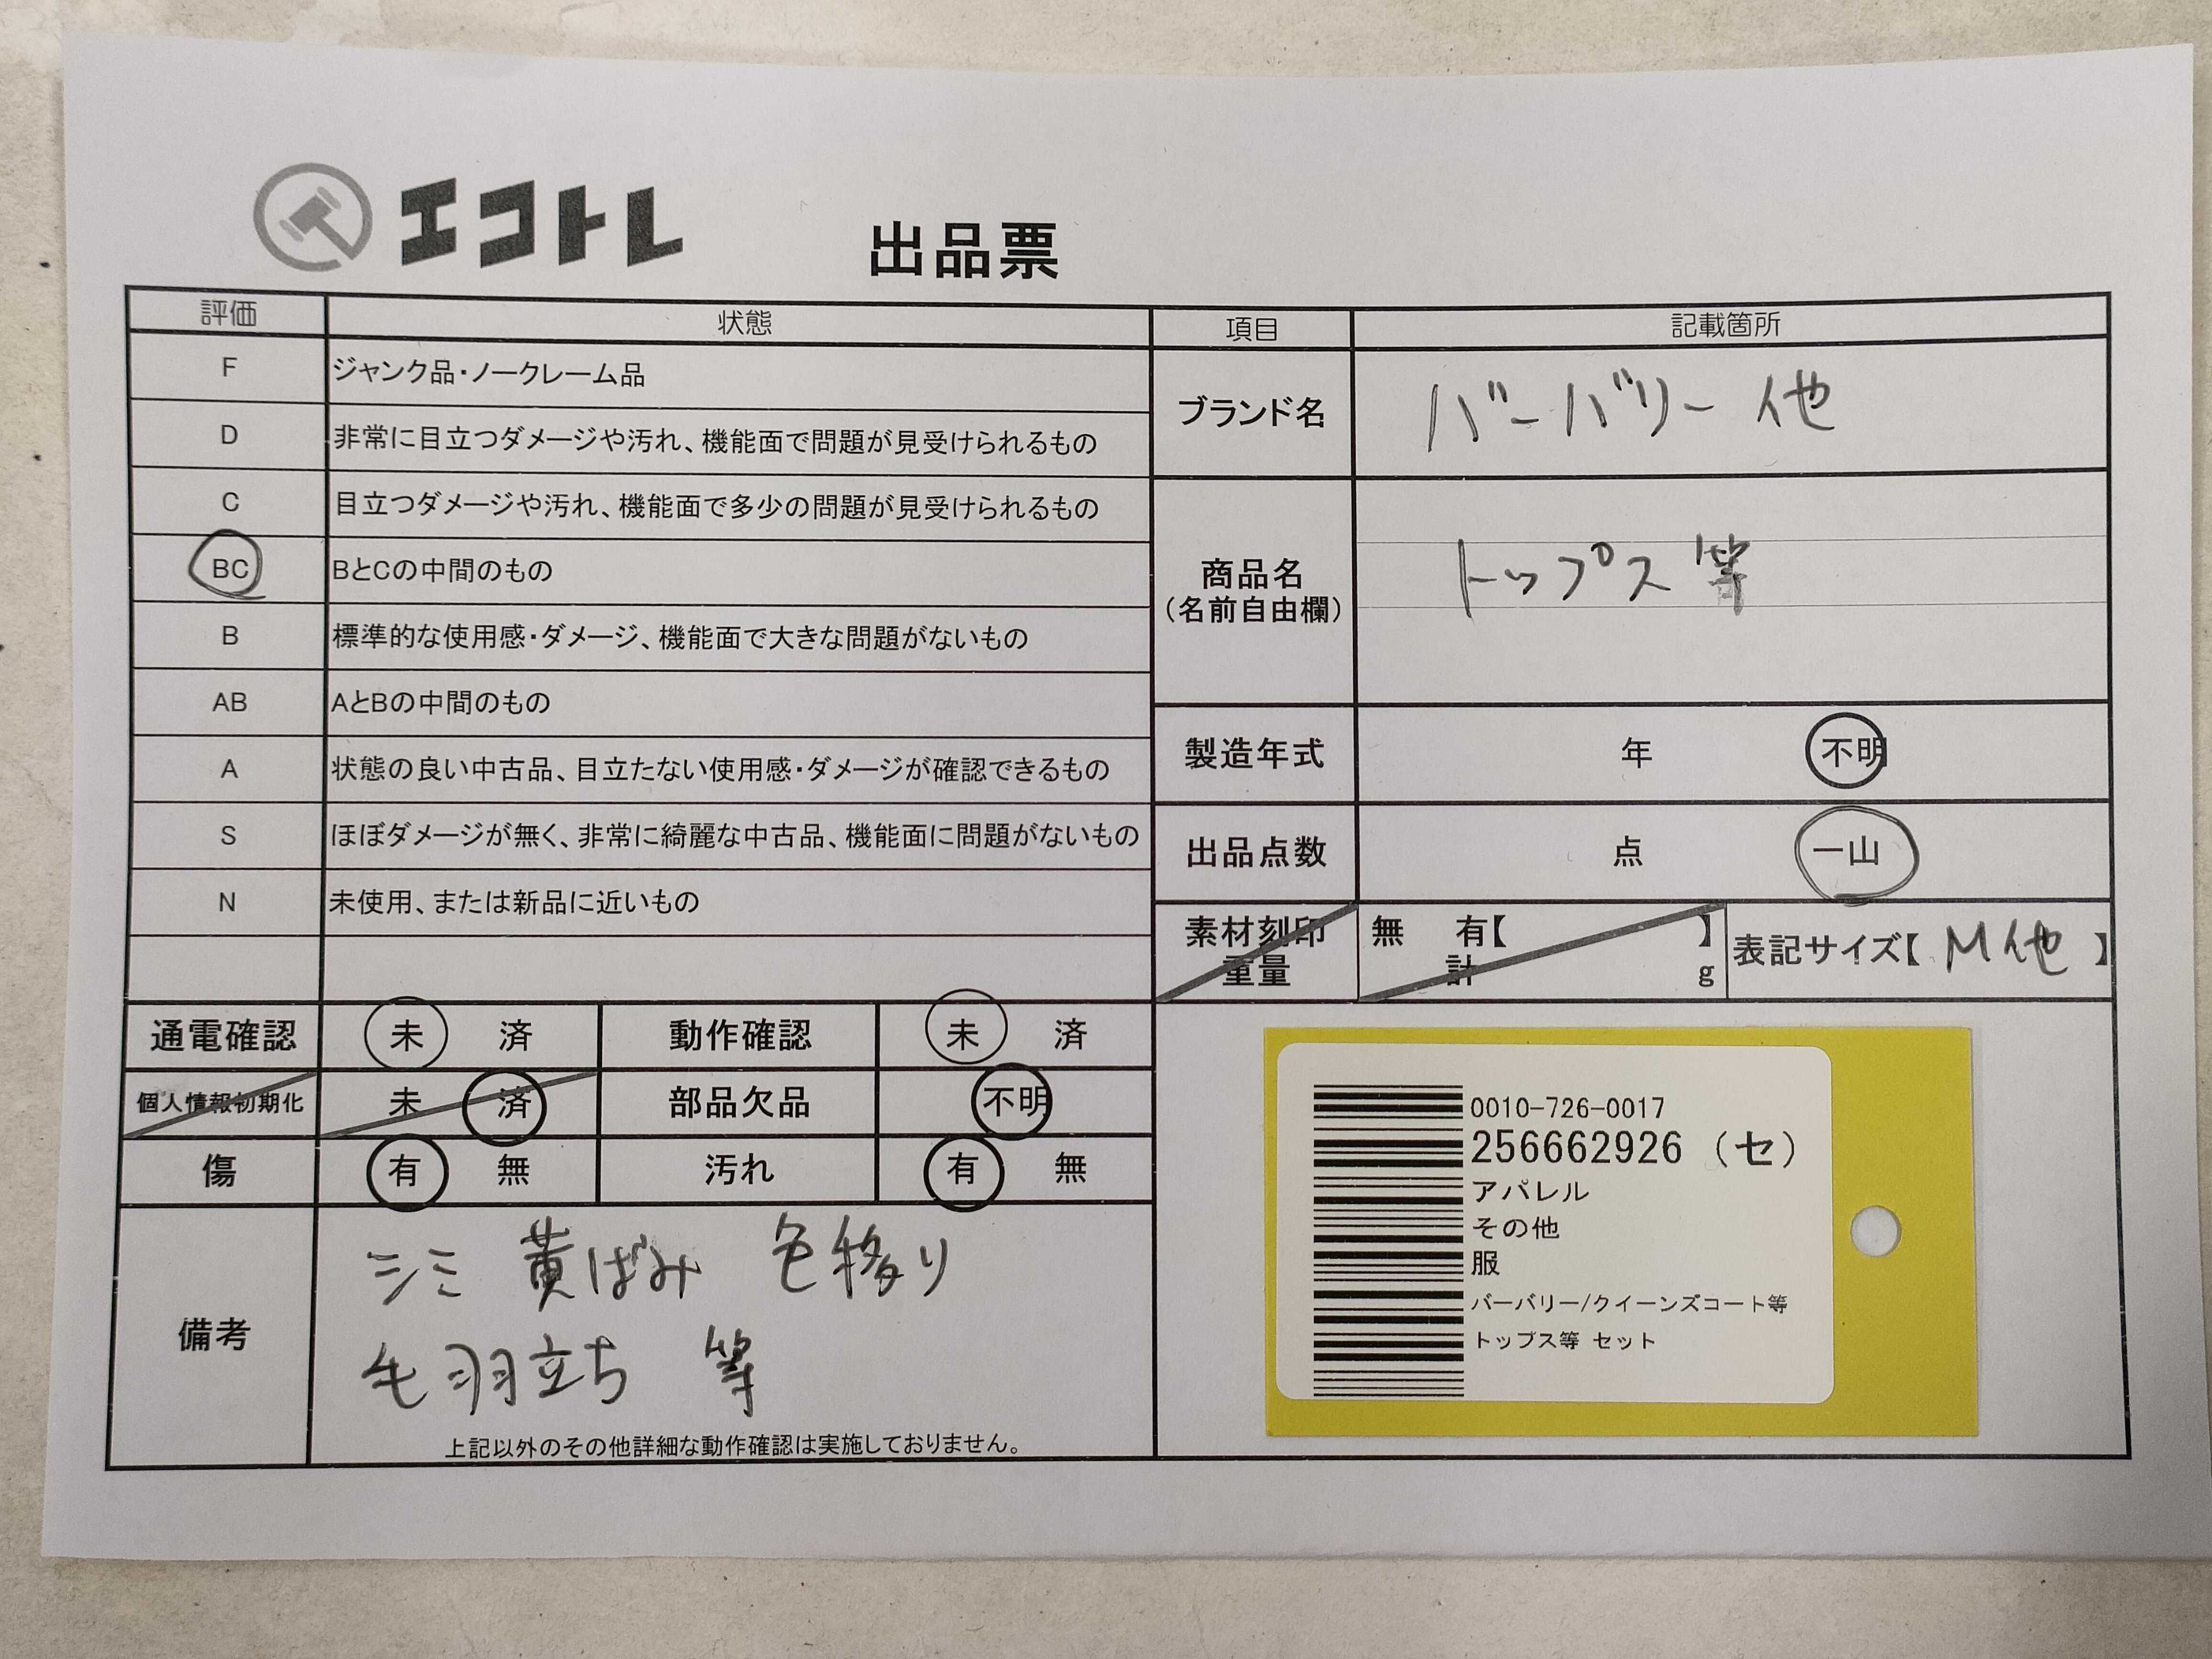 エコトレ
出品票
評価 状態
F ジャンク品・ノークレーム品
D 非常に目立つダメージや汚れ、機能面で問題が見受けられるもの
C 目立つダメージや汚れ、機能面で多少の問題が見受けられるもの
BC BとCの中間のもの
B 標準的な使用感・ダメージ、機能面で大きな問題がないもの
AB AとBの中間のもの
A 状態の良い中古品、目立たない使用感・ダメージが確認できるもの
S ほぼダメージが無く、非常に綺麗な中古品、機能面に問題がないもの
N 未使用、または新品に近いもの
項目 記載箇所
ブランド名 バーバリー 他
商品名
(名前自由欄)
トップス 等
製造年式 年 不明
出品点数 点 一山
素材刻印 無 有【 】
重量 計 g
表記サイズ【 M 他 】
通電確認 未 済 動作確認 未 済
個人情報初期化 未 済 部品欠品 不明
傷 有 無 汚れ 有 無
備考
シミ 黄ばみ 色移り
毛羽立ち 等
上記以外のその他詳細な動作確認は実施しておりません。
0010-726-0017
256662926 (セ)
アパレル
その他
服
バーバリー/クイーンズコート等
トップス等 セット